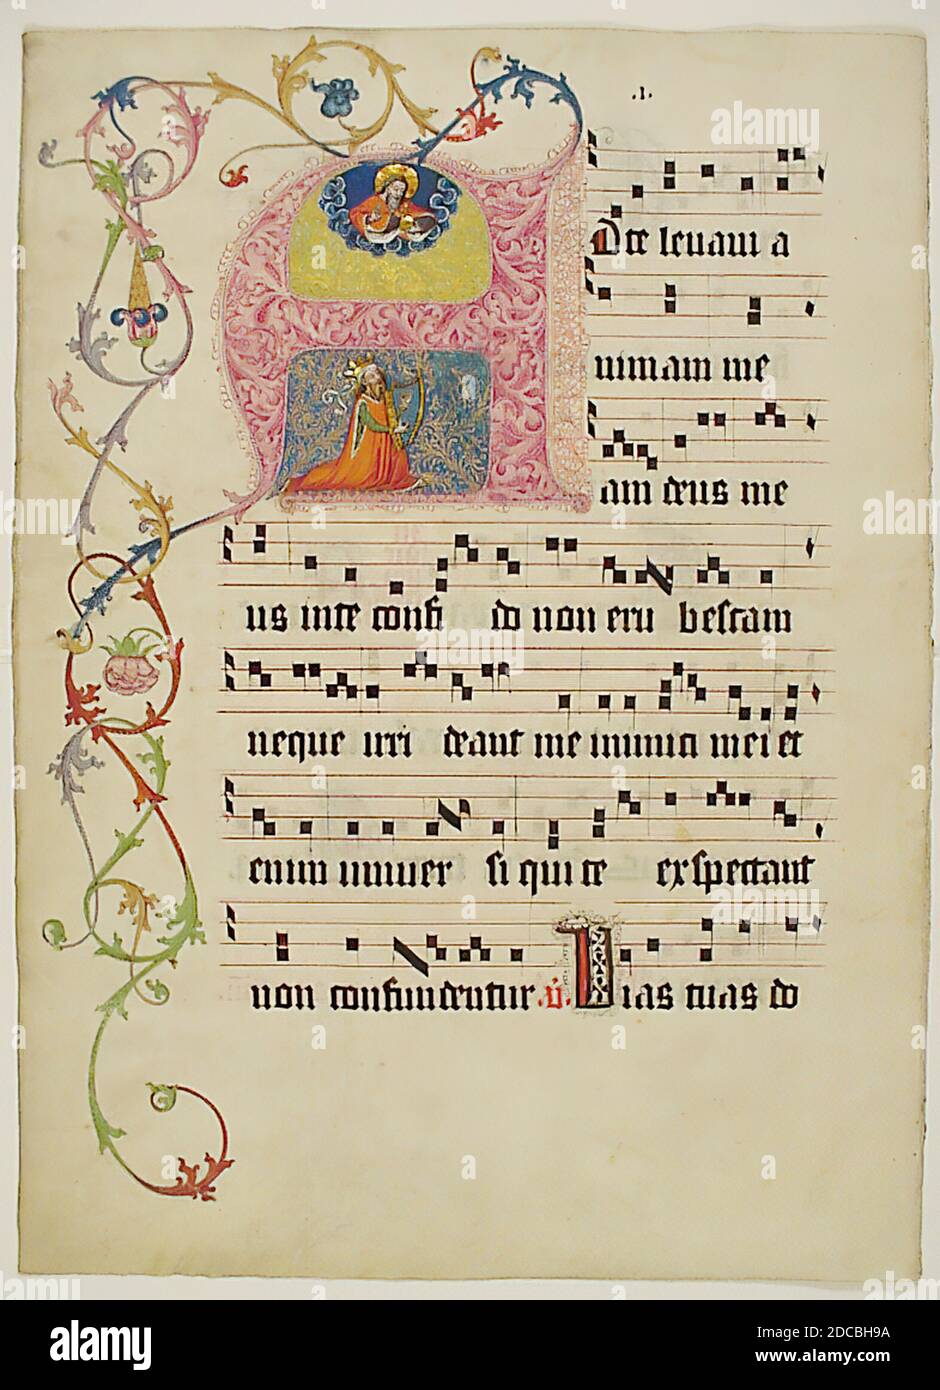 .1.
A Dte levavi a
nimam me
am deus me
us in te confi do non eru bescam
neque irri deant me inimici mei et
enim univer si qui te exspectant
non confundentur .v. Vias tuas do
alamy
Image ID: 2DCBH9A
www.alamy.com